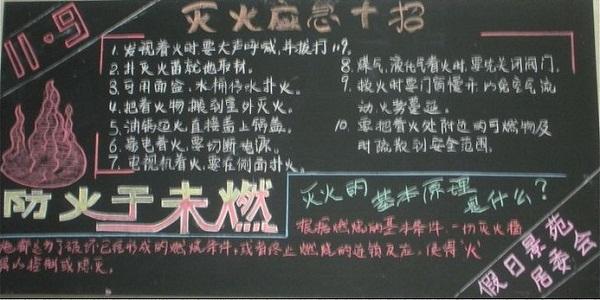 11·9
灭火应急十招
1. 发现着火时要大声呼喊,并拨打119。
2. 扑灭火苗就地取材。
3. 可用面盆、水桶传水扑火。
4. 把着火物搬到室外灭火。
5. 油锅起火直接盖上锅盖。
6. 家电着火,要切断电源。
7. 电视机着火,要在侧面扑火。
8. 煤气、液化气着火时,要先关闭阀门。
9. 救火时要门窗慢开以免空气流
动火势蔓延。
10. 要把着火处附近的可燃物及
时疏散到安全范围。
防火于未燃
灭火的基本原理
是什么?
根据燃烧的基本条件,一切灭火措
施都是为了破坏已经形成的燃烧条件,或者终止燃烧的连锁反应,使得'火'
得以控制或熄灭。
假日景苑
居委会